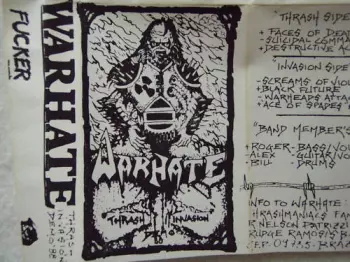 FUCKER
WARHATE
THRASH
INVASION
DEMO 88
WARHATE
THRASH INVASION
DEMO
"THRASH SIDE"
+ FACES OF DEAT
+ SUICIDAL COMMA
+ DESTRUCTIVE AC
"INVASION SIDE
- SCREAMS OF VIOL
+ BLACK FUTURE
+ WARHEADS ATTA
+ ACE OF SPADES (
"BAND MEMBER'S
- ROGER - BASS/VO
- ALEX - GUITAR/VO
- BILL - DRUMS
INFO TO WARHATE:
THRASHMANIACS FA
R. NELSON PATRIZZI
RUDGE RAMOS/S.B.
CEP. 09735-BRAZ